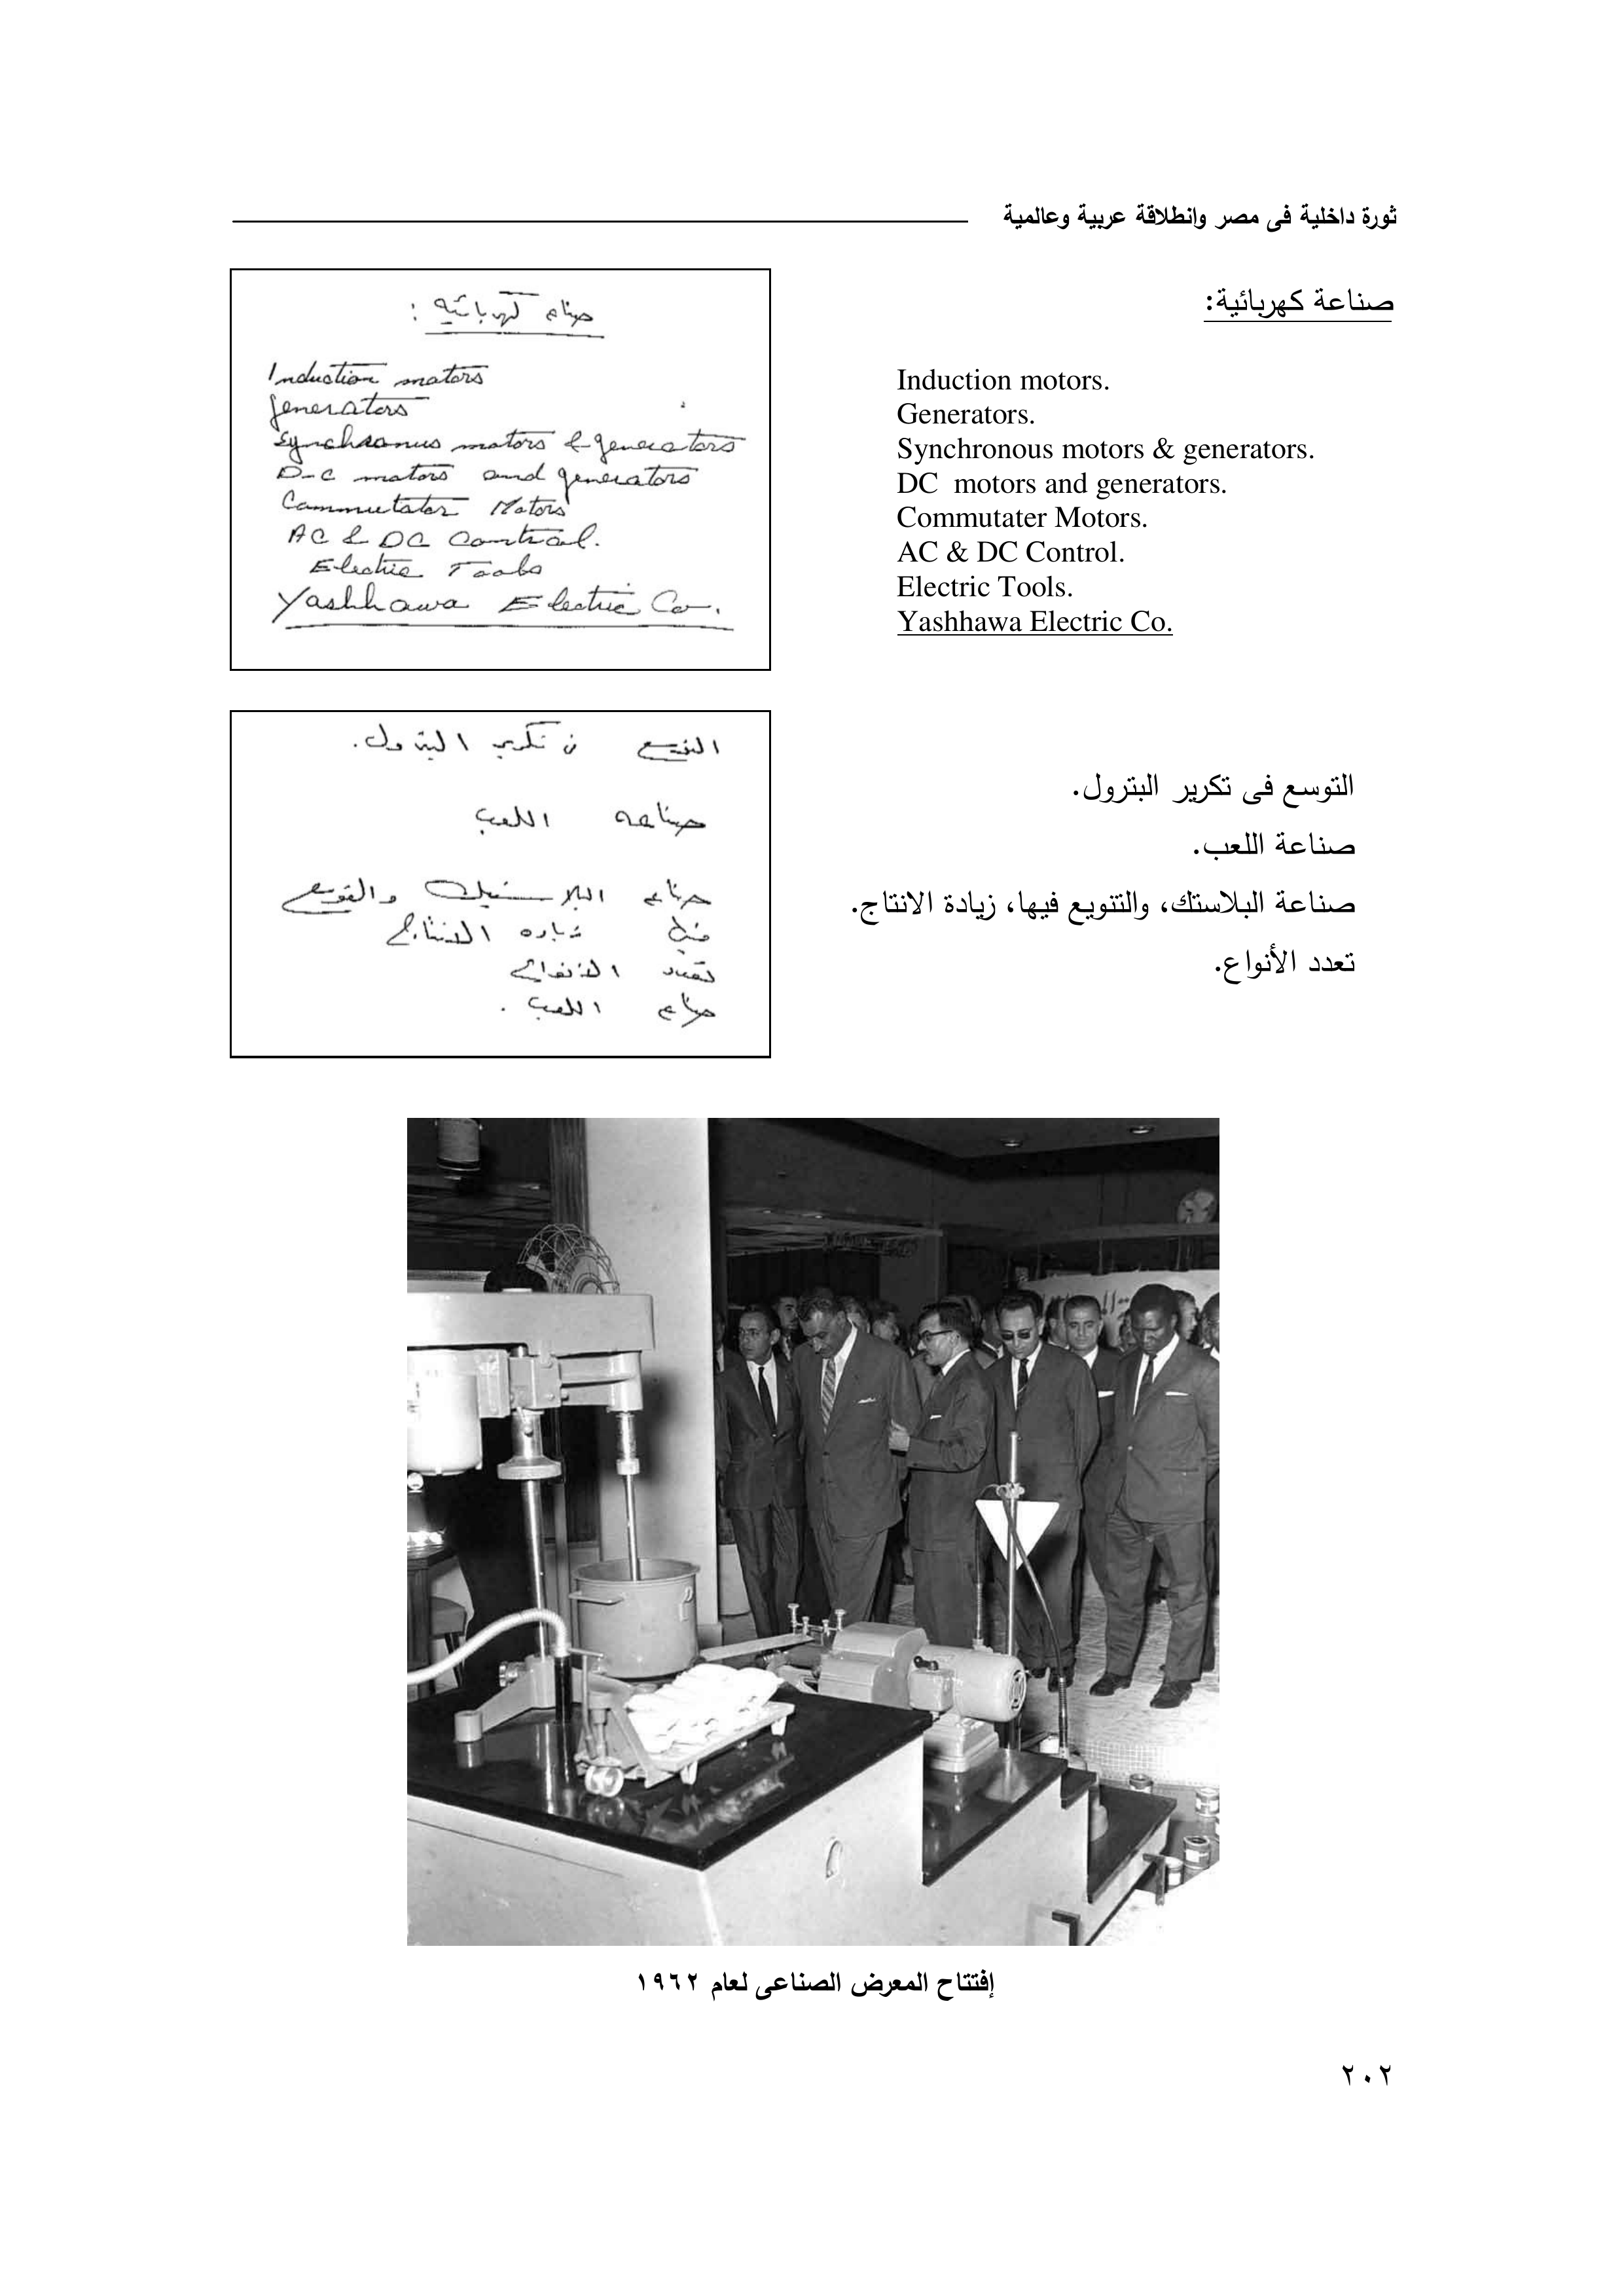 ثورة داخلية فى مصر وانطلاقة عربية وعالمية
صناعة كهربائية:
Induction motors.
Generators.
Synchronous motors & generators.
DC motors and generators.
Commutater Motors.
AC & DC Control.
Electric Tools.
Yashhawa Electric Co.
صناعه كهربائيه :
Induction motors
generators
Synchronus motors & generators
D-C motors and generators
Commutator Motors
AC & DC Control.
Electric Tools
Yashhawa Electric Co.
التوسع فى تكرير البترول.
صناعة اللعب.
صناعة البلاستك، والتنويع فيها، زيادة الانتاج.
تعدد الأنواع.
التوسع فى تكرير البترول.
صناعه اللعب
صناعه البلاستيك والتنويع
فيها زياده الانتاج
تعدد الانواع
صناعه اللعب .
إفتتاح المعرض الصناعى لعام ١٩٦٢
٢٠٢